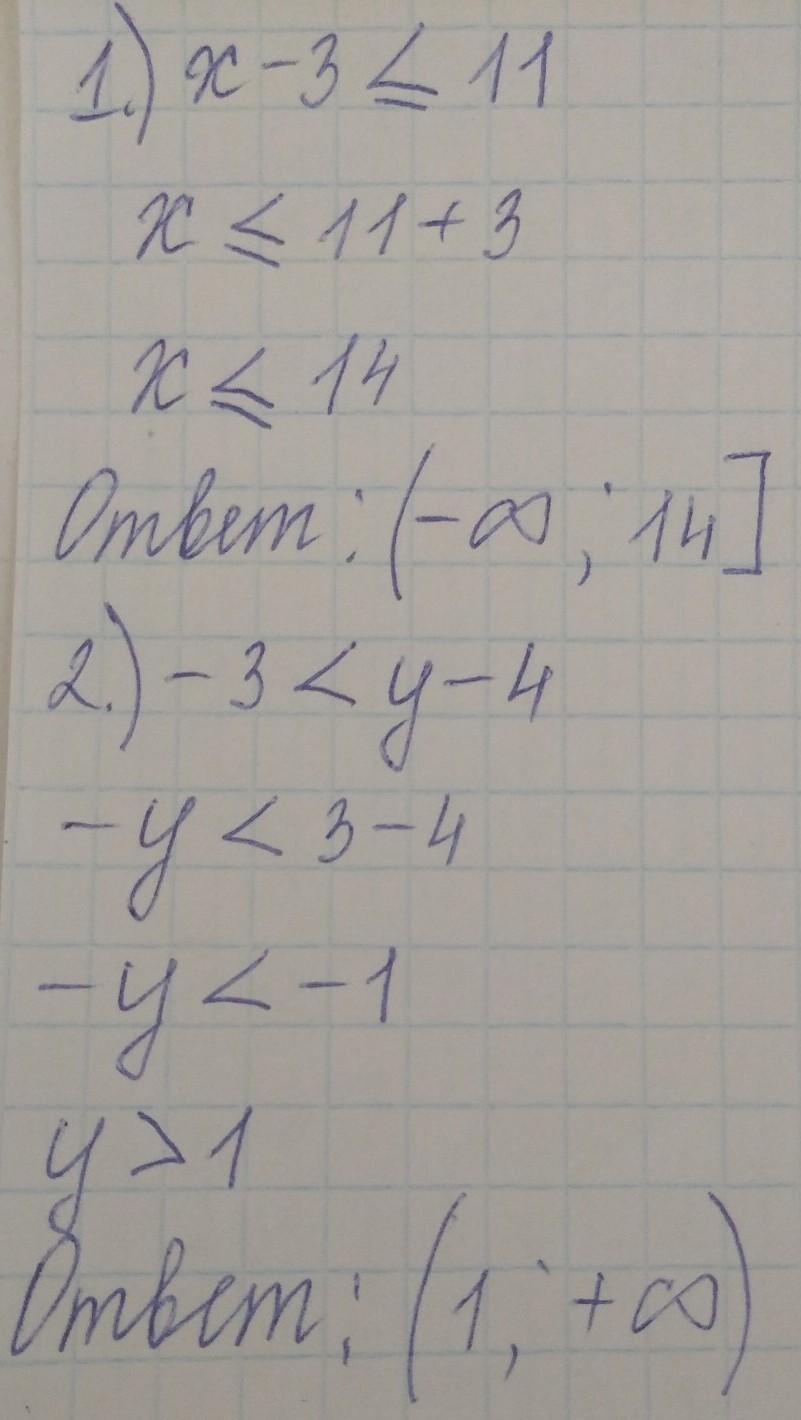 1.) x - 3 ≤ 11
x ≤ 11 + 3
x ≤ 14
Ответ: (-∞; 14]
2.) -3 < y - 4
-y < 3 - 4
-y < -1
y > 1
Ответ: (1; +∞)